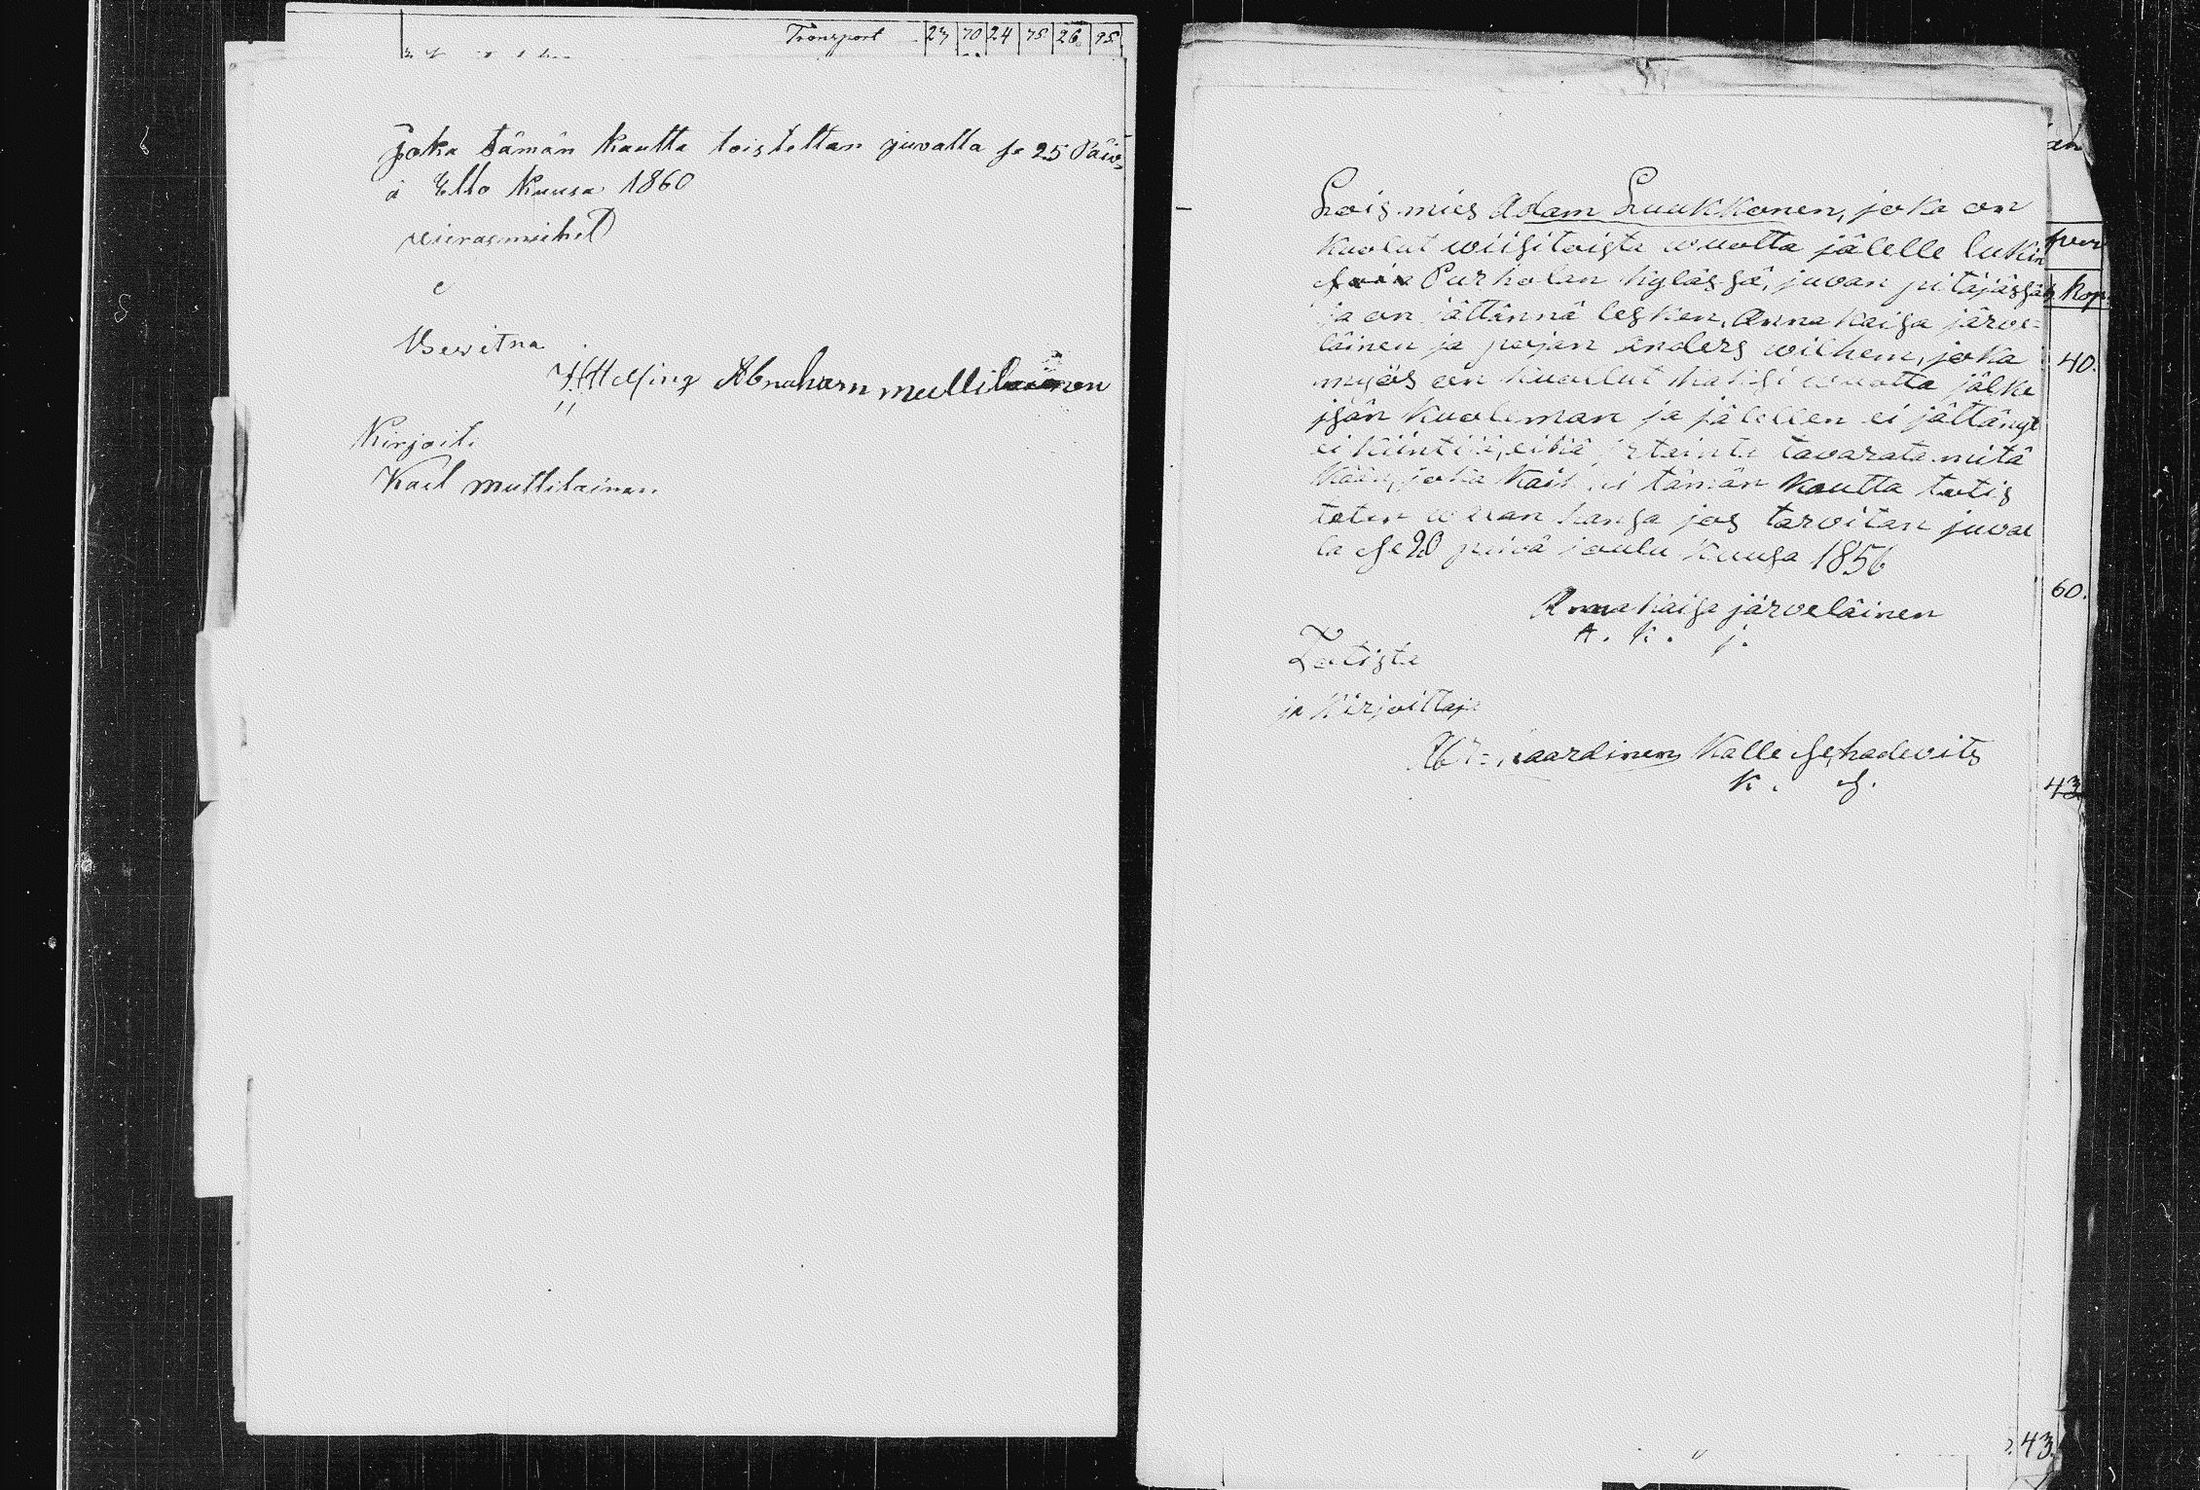 Transport 23 70 24 75 26 95
Joka tämän kautta toistettan juvalla se 25 Päiv=
ä Elo kuusa 1860
vierasmiehet
Bewitna
HHelsing Abraham mullilainen
Kirjoiti
Kael multilainen
Lois mies Adam Luukkonen, joka on
kuolut wiisitoista wuotta jälelle lukin
Purholan kylässä, juvan pitäjässä
ja on jättännä lesken, Anna Kaisa järve=
läinen ja pojan anders wilhem, joka
myös on kuollut kaksi wuotta jälke
isän kuoleman ja jälellen ei jättänyt
ei kiintiä, eikä irtainta tavarata mitä
kään, joka tämän kautta totis
teten wuan hansa jos tarvitan juval
la se 20 päivä joulu kuusa 1856
Anna Kaisa järveläinen
A. K. j.
Totista
ja kirjoittaja
Kalle Sehadevits
K. S.
kop
40.
60.
43
43.